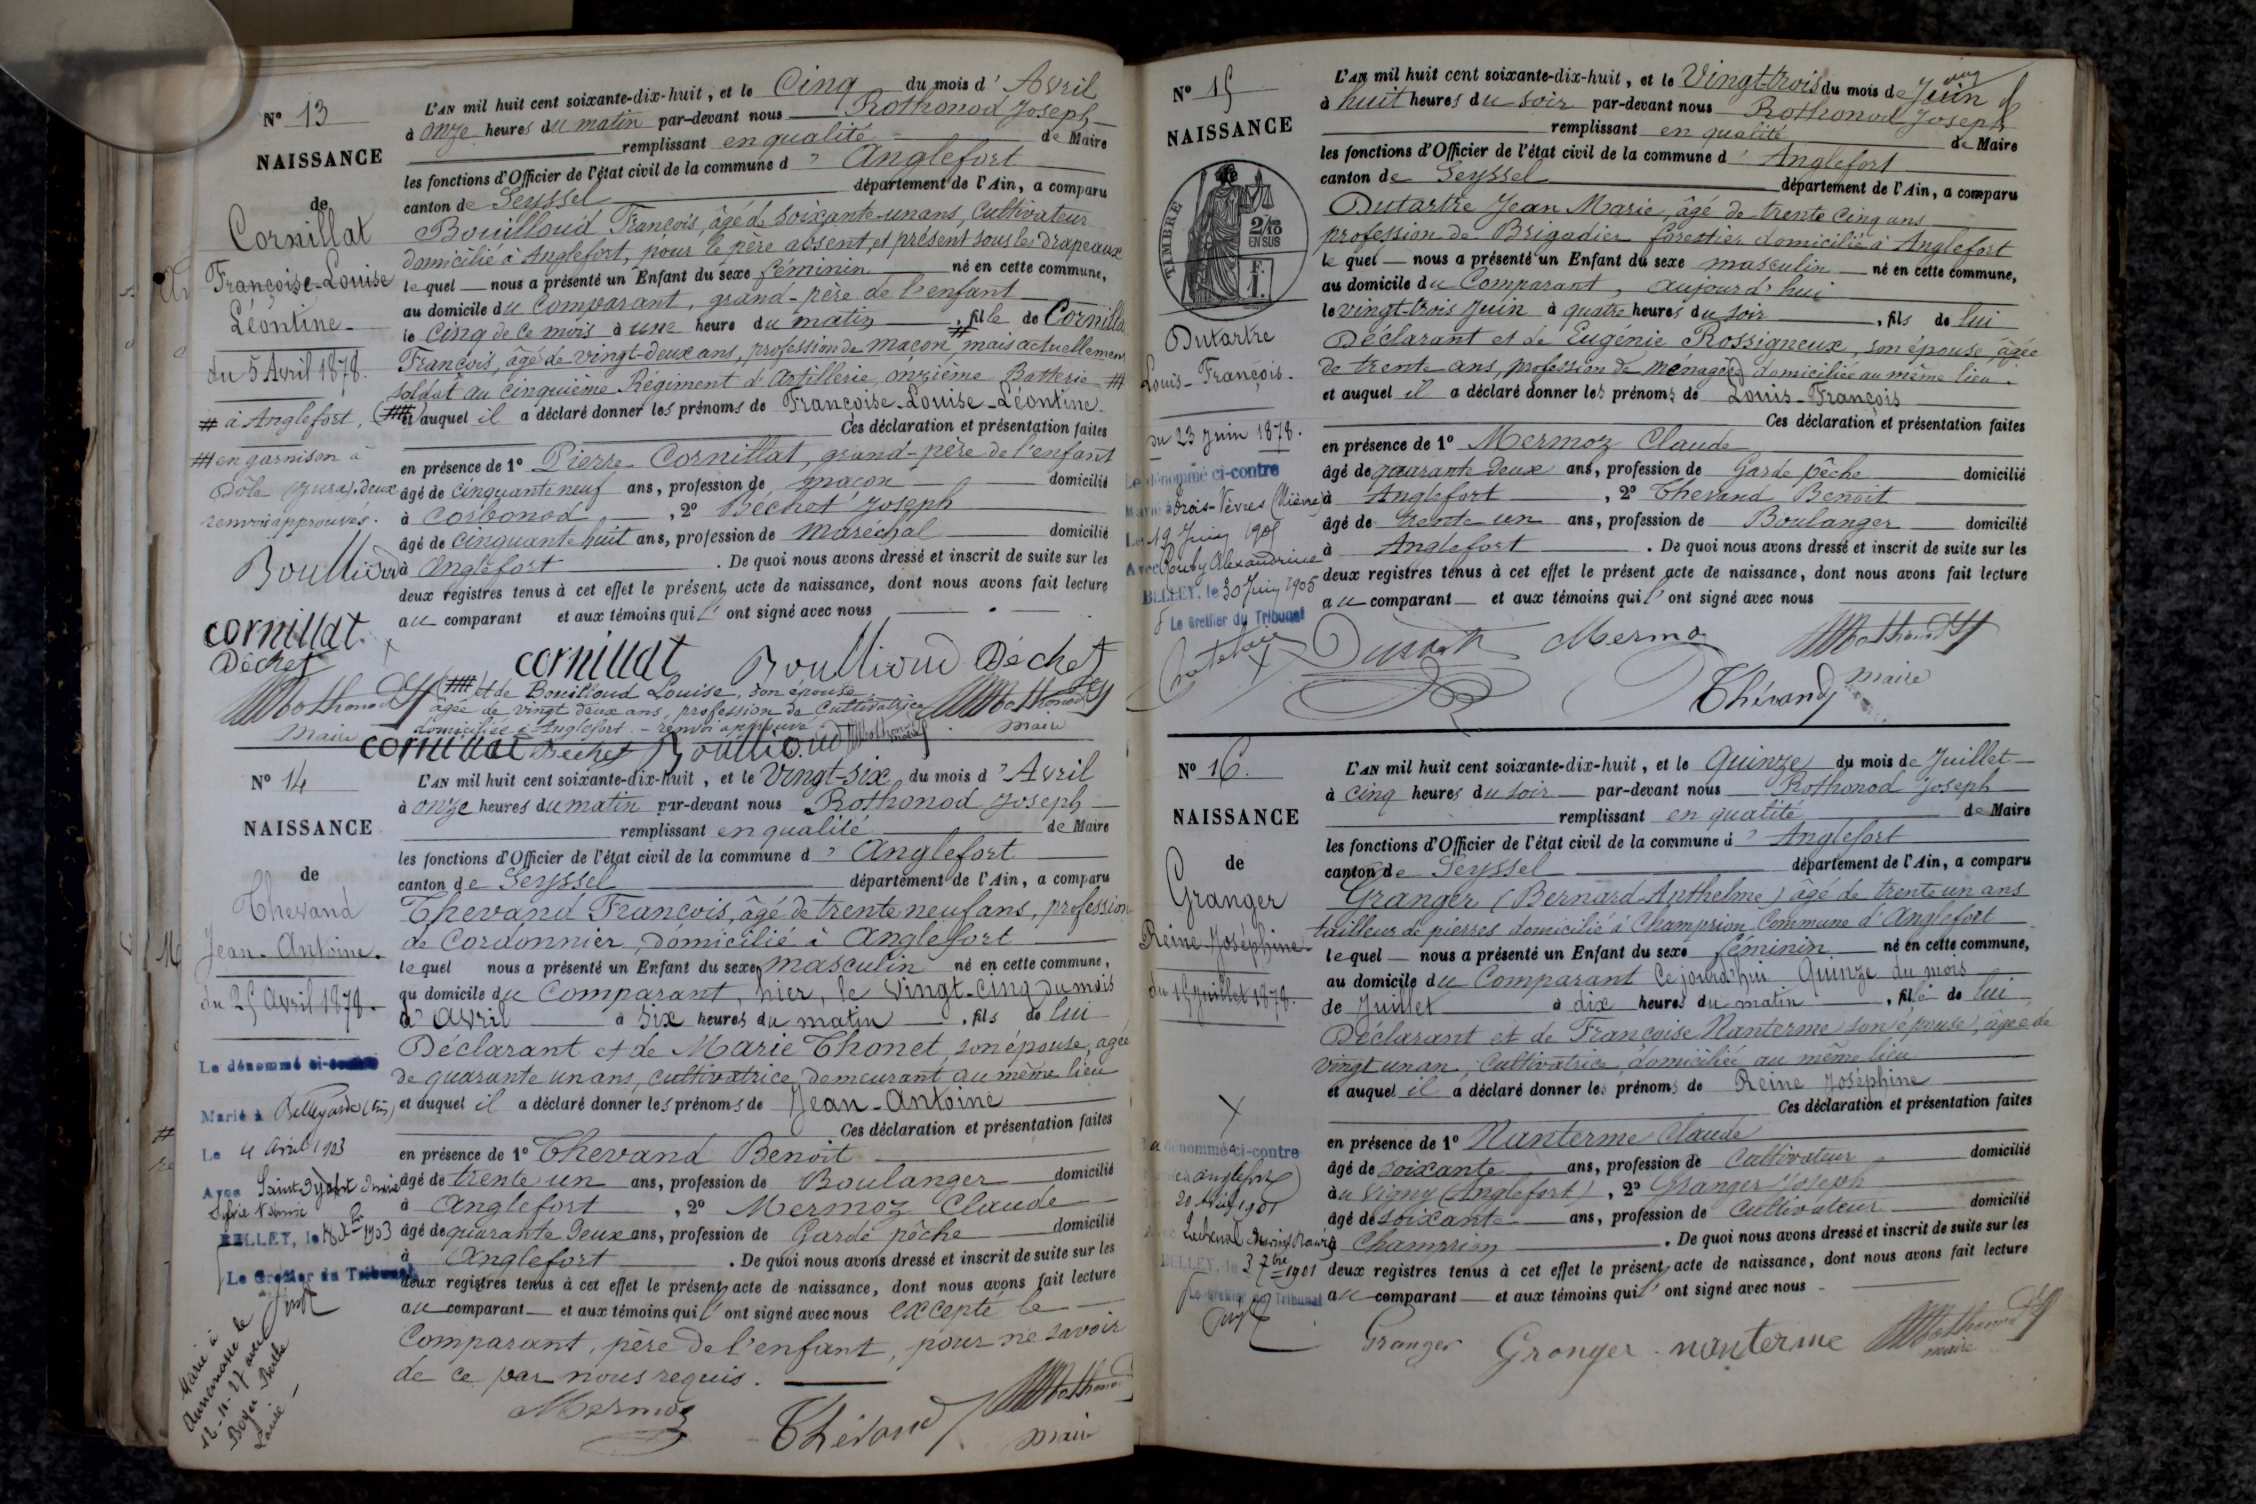 N° 13
NAISSANCE
de
Cornillat
Françoise-Louise
Léontine
du 5 Avril 1878.
# à Anglefort,
## en garnison à
Dôle (Jura), deux
renvois approuvés.
Boullioud
cornillat
Déchet
Rothonod
Maire
L'AN mil huit cent soixante-dix-huit, et le Cinq du mois d' Avril
à onze heures du matin par-devant nous Rothonod Joseph
remplissant en qualité de Maire
les fonctions d'Officier de l'état civil de la commune d' Anglefort
canton de Seyssel département de l'Ain, a comparu
Bouilloud François, âgé de soixante-un ans, Cultivateur
domicilié à Anglefort, pour le père absent, et présent sous les drapeaux
lequel nous a présenté un Enfant du sexe féminin né en cette commune,
au domicile du Comparant, grand-père de l'enfant
le cinq de ce mois à une heure du matin, fille de Cornillat
François, âgé de vingt-deux ans, profession de maçon # mais actuellement
soldat au cinquième Régiment d'Artillerie, onzième Batterie ##
(###) et auquel il a déclaré donner les prénoms de Françoise-Louise-Léontine.
Ces déclaration et présentation faites
en présence de 1° Pierre Cornillat, grand-père de l'enfant
âgé de cinquante neuf ans, profession de maçon domicilié
à Corbonod, 2° Béchet Joseph
âgé de cinquante huit ans, profession de Maréchal domicilié
à Anglefort. De quoi nous avons dressé et inscrit de suite sur les
deux registres tenus à cet effet le présent acte de naissance, dont nous avons fait lecture
au comparant et aux témoins qui l'ont signé avec nous
cornillat Boullioud Déchet
(###) et de Bouilloud Louise, son épouse,
âgée de vingt deux ans, profession de Cultivatrice
domiciliée à Anglefort. - renvoi approuvé
Rothonod
Maire
cornillat Déchet Boullioud Rothonod
N° 14
NAISSANCE
de
Thevand
Jean-Antoine.
du 25 Avril 1878.
Le dénommé ci-contre
Marié à Bellegarde (Ain)
Le 4 Avril 1903
Avec Saint-
BELLEY, le 1903
Le Greffier du Tribunal
Marié à
Annemasse le
12-11-27 avec
Boyer Berthe
Louise
L'AN mil huit cent soixante-dix-huit, et le Vingt-six du mois d' Avril
à onze heures du matin par-devant nous Rothonod Joseph
remplissant en qualité de Maire
les fonctions d'Officier de l'état civil de la commune d' Anglefort
canton de Seyssel département de l'Ain, a comparu
Thevand François, âgé de trente neuf ans, profession
de Cordonnier, domicilié à Anglefort
lequel nous a présenté un Enfant du sexe masculin né en cette commune,
au domicile du Comparant, hier, le Vingt-cinq du mois
d'Avril à six heures du matin, fils de lui
Déclarant et de Marie Thonet, son épouse, agée
de quarante un ans, cultivatrice, demeurant au même lieu
et auquel il a déclaré donner les prénoms de Jean-Antoine
Ces déclaration et présentation faites
en présence de 1° Thevand Benoit
âgé de trente un ans, profession de Boulanger domicilié
à Anglefort, 2° Mermoz Claude
âgé de quarante deux ans, profession de Garde pêche domicilié
à Anglefort. De quoi nous avons dressé et inscrit de suite sur les
deux registres tenus à cet effet le présent acte de naissance, dont nous avons fait lecture
au comparant et aux témoins qui l'ont signé avec nous excepté le
Comparant, père de l'enfant, pour ne savoir
de ce par nous requis.
Mermoz Thévand Rothonod
Maire
N° 15
NAISSANCE
TIMBRE
2/10
EN SUS
1 F.
Dutartre
Louis-François.
du 23 Juin 1878.
Le dénommé ci-contre
Marié à Trois-Vèvres (Nièvre)
Le 19 Juin 1905
Avec Pouby Alexandrine
BELLEY, le 30 Juin 1905
Le Greffier du Tribunal
L'AN mil huit cent soixante-dix-huit, et le Vingt-trois du mois de Juin
à huit heures du soir par-devant nous Rothonod Joseph
remplissant en qualité de Maire
les fonctions d'Officier de l'état civil de la commune d' Anglefort
canton de Seyssel département de l'Ain, a comparu
Dutartre Jean Marie, âgé de trente cinq ans
profession de Brigadier forestier domicilié à Anglefort
lequel nous a présenté un Enfant du sexe masculin né en cette commune,
au domicile du Comparant, aujourd'hui
le vingt-trois Juin à quatre heures du soir, fils de lui
Déclarant et de Eugénie Rossigneux, son épouse, âgée
de trente ans, profession de ménagère domiciliée au même lieu.
et auquel il a déclaré donner les prénoms de Louis-François
Ces déclaration et présentation faites
en présence de 1° Mermoz Claude
âgé de quarante deux ans, profession de Garde pêche domicilié
à Anglefort, 2° Thevand Benoit
âgé de trente un ans, profession de Boulanger domicilié
à Anglefort. De quoi nous avons dressé et inscrit de suite sur les
deux registres tenus à cet effet le présent acte de naissance, dont nous avons fait lecture
au comparant et aux témoins qui l'ont signé avec nous
Mermoz Rothonod
Thévand Maire
N° 16.
NAISSANCE
de
Granger
Reine-Joséphine.
du 15 Juillet 1878.
La dénommée ci-contre
Anglefort
20 1901
BELLEY, le 3 7bre 1901
Le Greffier du Tribunal
L'AN mil huit cent soixante-dix-huit, et le Quinze du mois de Juillet
à cinq heures du soir par-devant nous Rothonod Joseph
remplissant en qualité de Maire
les fonctions d'Officier de l'état civil de la commune d' Anglefort
canton de Seyssel département de l'Ain, a comparu
Granger (Bernard-Anthelme) âgé de trente un ans
tailleur de pierres domicilié à Champrion Commune d'Anglefort
lequel nous a présenté un Enfant du sexe féminin né en cette commune,
au domicile du Comparant Cejourd'hui Quinze du mois
de Juillet à dix heures du matin, fille de lui
Déclarant et de Françoise Nanterme son épouse, âgée de
vingt un an, Cultivatrice, domiciliée au même lieu
et auquel il a déclaré donner les prénoms de Reine Joséphine
Ces déclaration et présentation faites
en présence de 1° Nanterme Claude
âgé de soixante ans, profession de Cultivateur domicilié
au Vigny (Anglefort), 2° Granger Joseph
âgé de soixante ans, profession de Cultivateur domicilié
à Champrion. De quoi nous avons dressé et inscrit de suite sur les
deux registres tenus à cet effet le présent acte de naissance, dont nous avons fait lecture
au comparant et aux témoins qui l'ont signé avec nous
Granger Granger nanterme Rothonod
maire